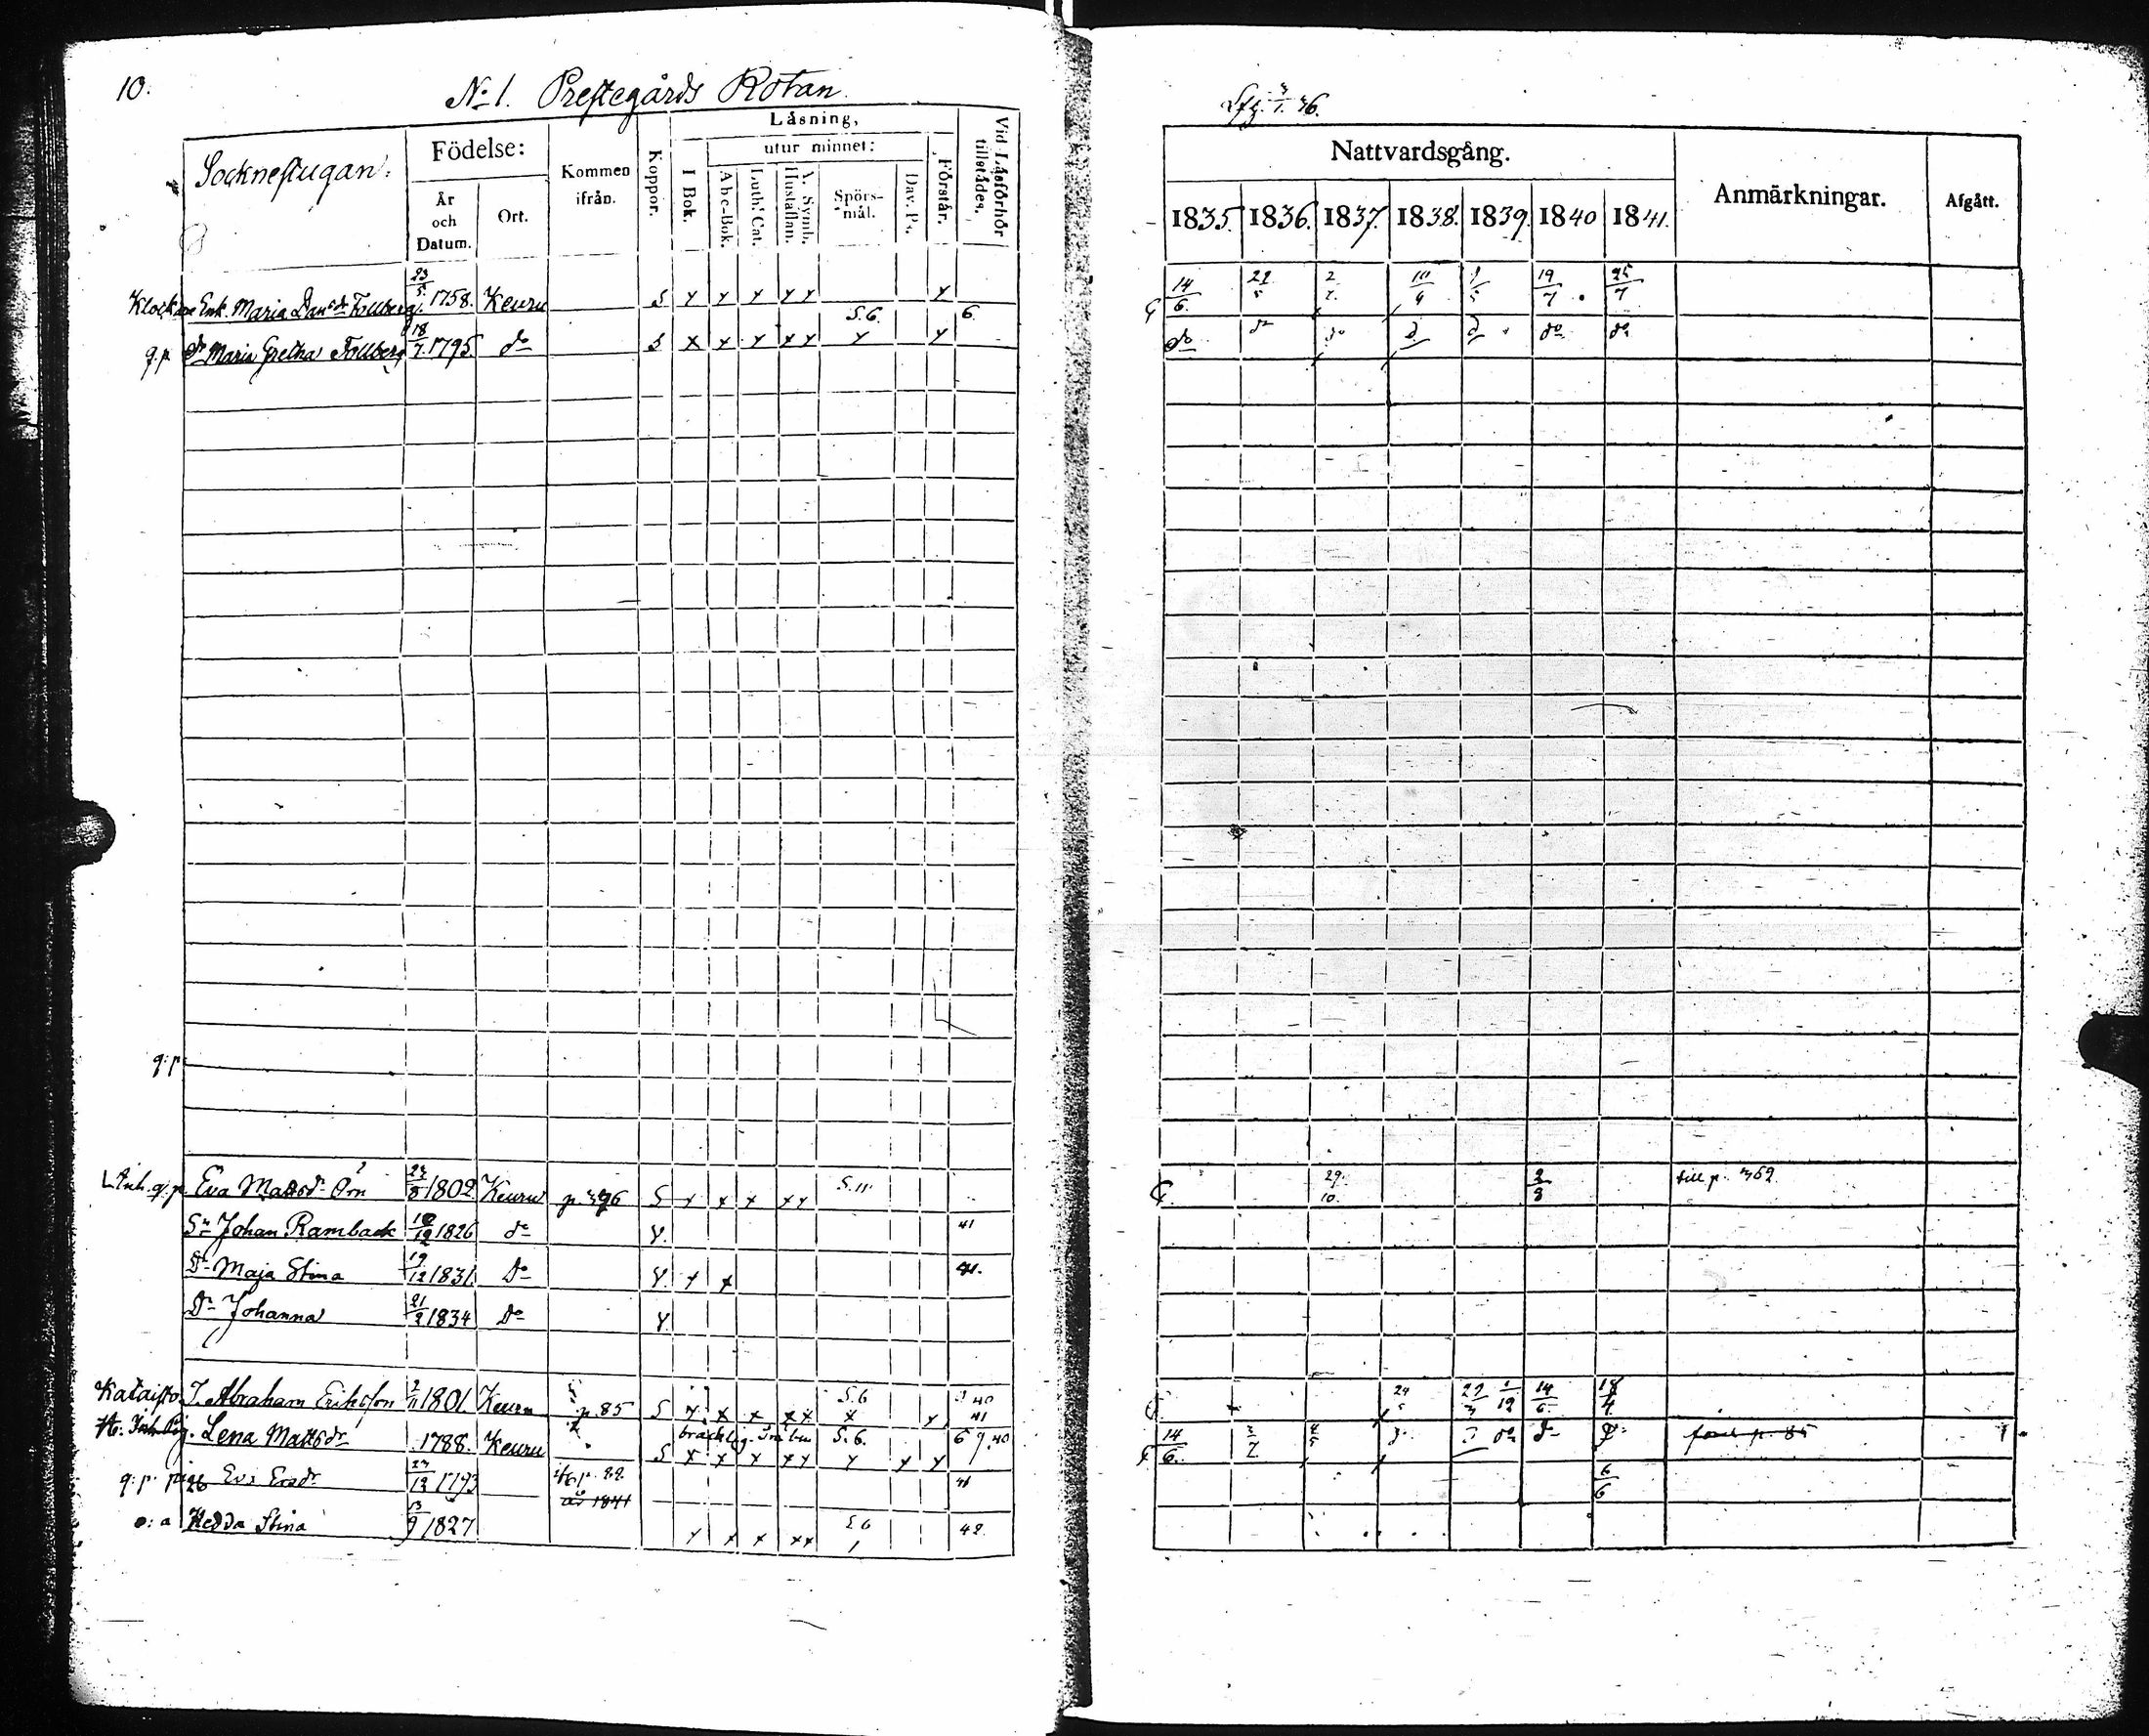 10.
No 1. Prestegårds Rotan.
Sockneftugan.
Födelse:
År och Datum.
Ort.
Kommen ifrån.
Koppor.
Läsning,
utur minnet:
I Bok.
Abc-Bok.
Luth. Cat.
A. Symb. Hustaflan.
Spörsmål.
Dav. Ps.
Förstår.
Vid Läsförhör tillstädes.
Klockare Enk. Maria Davsdr Follberg 23/5 1758. Keuru S y y y y y y
q.p. Dr Maria Gretha Follberg 18/7 1795 do S x y y x y S.6. y y 6.
q:p
Inh. q.p. Eva Mattsdr Örn 23/8 1802. Keuru p. 396 S x x x x y S.11
Sn Johan Ramback 12 1826 do y. 41
Dr Maja Stina 19/12 1831 Do y. x x 41.
Dr Johanna 21/2 1834 Do y.
Kataisto J. Abraham Eriksson 2/11 1801. Keuru p. 85 S y. x x x x S.6 x y 40 41
Lena Mattsdr 1788. Keuru S x x x x y S.6. y y y 6 9.40
q:p: piga Eva Ersdr 1793 p. 22 41
år 1841
o: a Hedda Stina 13/9 1827 y x x x x S6 1 42.
3/1. 36.
Nattvardsgång.
Anmärkningar.
Afgått.
1835. 1836. 1837. 1838. 1839. 1840 1841.
14/6. 22/5 2/7. 10/4 1/5 19/7. 25/7
do do do do do do do
29. 10. 2/8 till p. 362
24/5 22/3 1/12 14/6 18/4.
14/6. 3/7 4/5 do do do förd p. 85
6/6